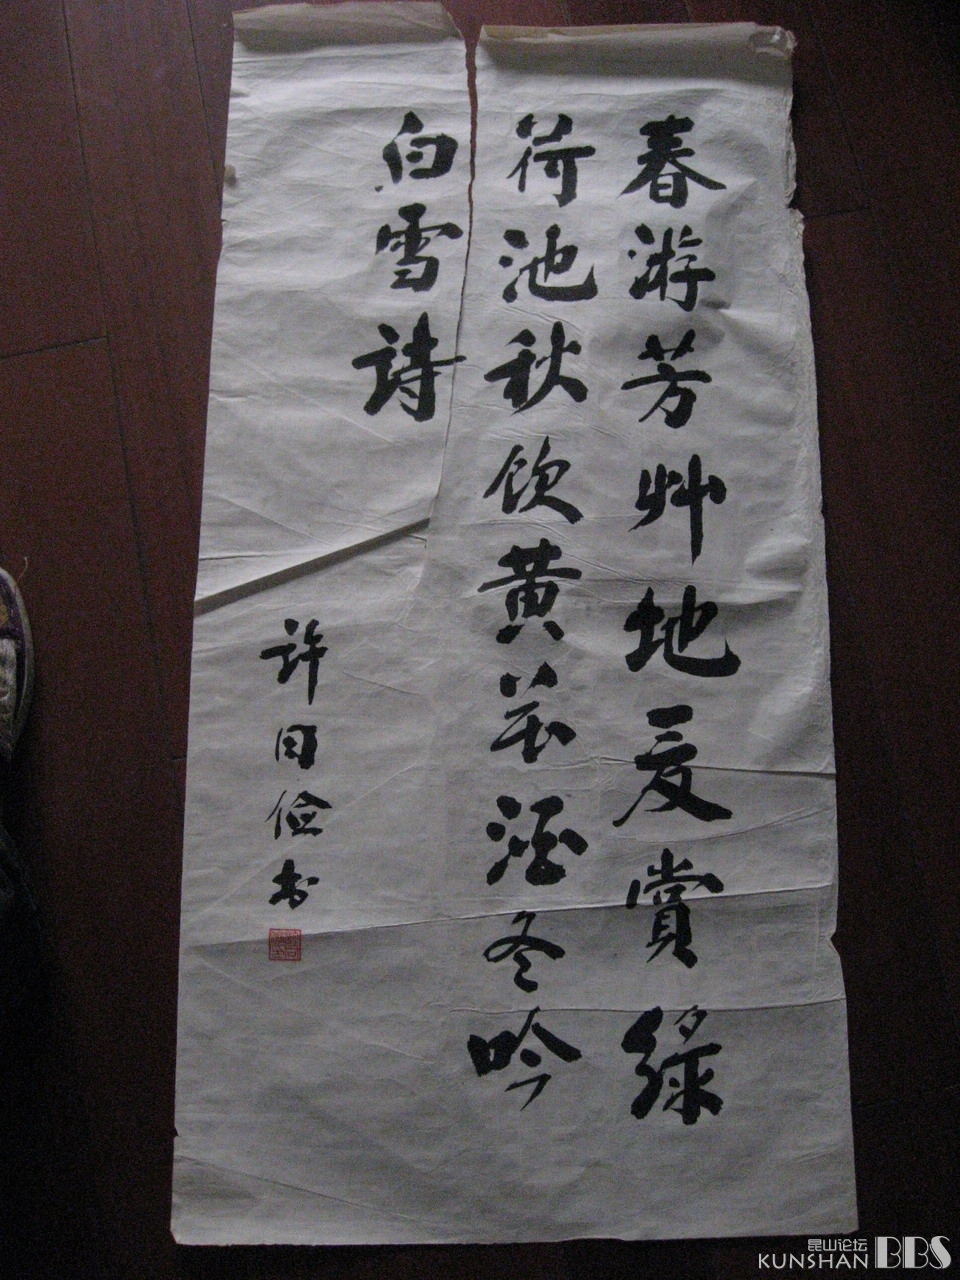 春游芳艸地夏賞綠
荷池秋飲黃花酒冬吟
白雪詩
許同儉书
昆山论坛
KUNSHAN BBS